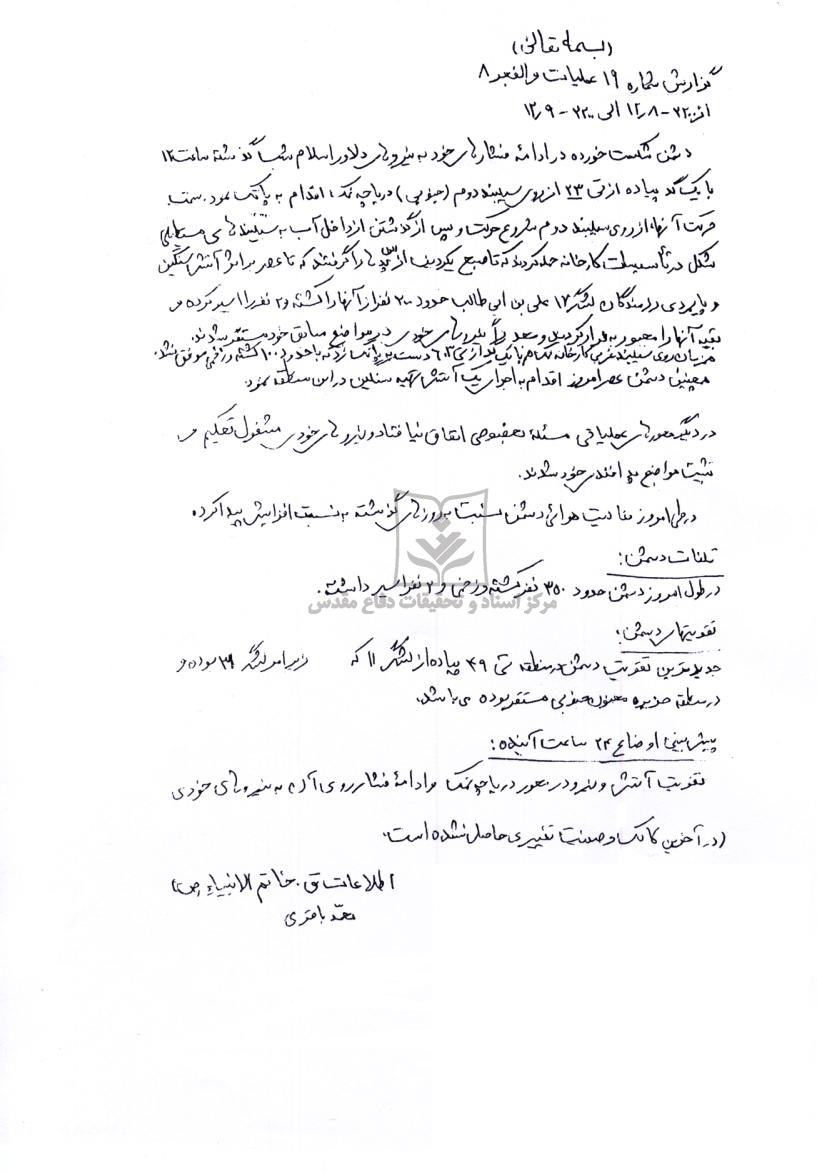 (بسمه تعالی)
گزارش شماره ۱۹ عملیات والفجر ۸
از ۲۲۰۰ - ۱۲/۸ الی ۲۲۰۰ - ۱۲/۹
دشمن شکست خورده در ادامهٔ فشارهای خود به نیروهای دلاور اسلام شب گذشته ساعت ۱۲
با یک گد پیاده از تی ۲۳ از روی سیلبند دوم (جنوبی) دریاچه نمک، اقدام به پاتک نمود. سمت
حرکت آنها از روی سیلبند دوم شروع حرکت و پس از گذشتن از داخل آب به سیلبندهای مستطیلی
شکل در تأسیسات کارخانه حمله کردند که تا صبح یکردیف از سیلبندها را گرفتند که تا عصر بر اثر آتش سنگین
و پایمردی رزمندگان لشگر ۱۷ علی بن ابی طالب حدود ۲۰۰ نفر از آنها را کشته و ۲ نفر را اسیر کرده و
بقیه آنها را مجبور به فرار کردند و مجدداً نیروهای خودی در مواضع سابق خود مستقر شدند.
همزمان روی سیلبند غربی کارخانه نمک هم با یک گد از تی دست به پاتک زد که با حدود ۱۰۰ کشته و زخمی موفق نشد.
همچنین دشمن عصر امروز اقدام به اجرای یک آتش تهیه سنگین در این منطقه نمود.
در دیگر محورهای عملیاتی مسئله بخصوصی اتفاق نیافتاد و نیروهای خودی مشغول تحکیم و
تثبیت مواضع پدافندی خود شدند.
در طی امروز فعالیت هوائی دشمن نسبت به روزهای گذشته به نسبت افزایش پیدا کرده
تلفات دشمن:
در طول امروز دشمن حدود ۳۵۰ نفر کشته و زخمی و ۲ نفر اسیر داشته.
مرکز اسناد و تحقیقات دفاع مقدس
تقویتهای دشمن:
جدیدترین تقویت دشمن در منطقه تی ۴۹ پیاده از لشگر ۱۱ که زیر امر لشگر ۳۱ بوده و
در منطقه جزیره مجنون جنوبی مستقر بوده می باشد.
پیش بینی اوضاع ۲۴ ساعت آینده:
تقویت آتش و نیرو در محور دریاچه نمک و ادامهٔ فشار روی آن به نیروهای خودی
(در آخرین کالک وضعیت تغییری حاصل نشده است.
اطلاعات ق. خاتم الانبیاء (ص)
محمد باقری